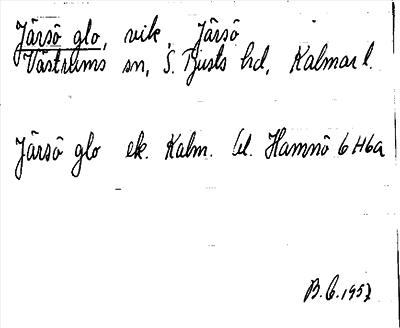 Järsö glo, vik, Järsö
Västrums sn, S. Tjusts hd, Kalmar l.
Järsö glo ek. Kalm. bl. Hamnö 6 H6a
B. E. 1957